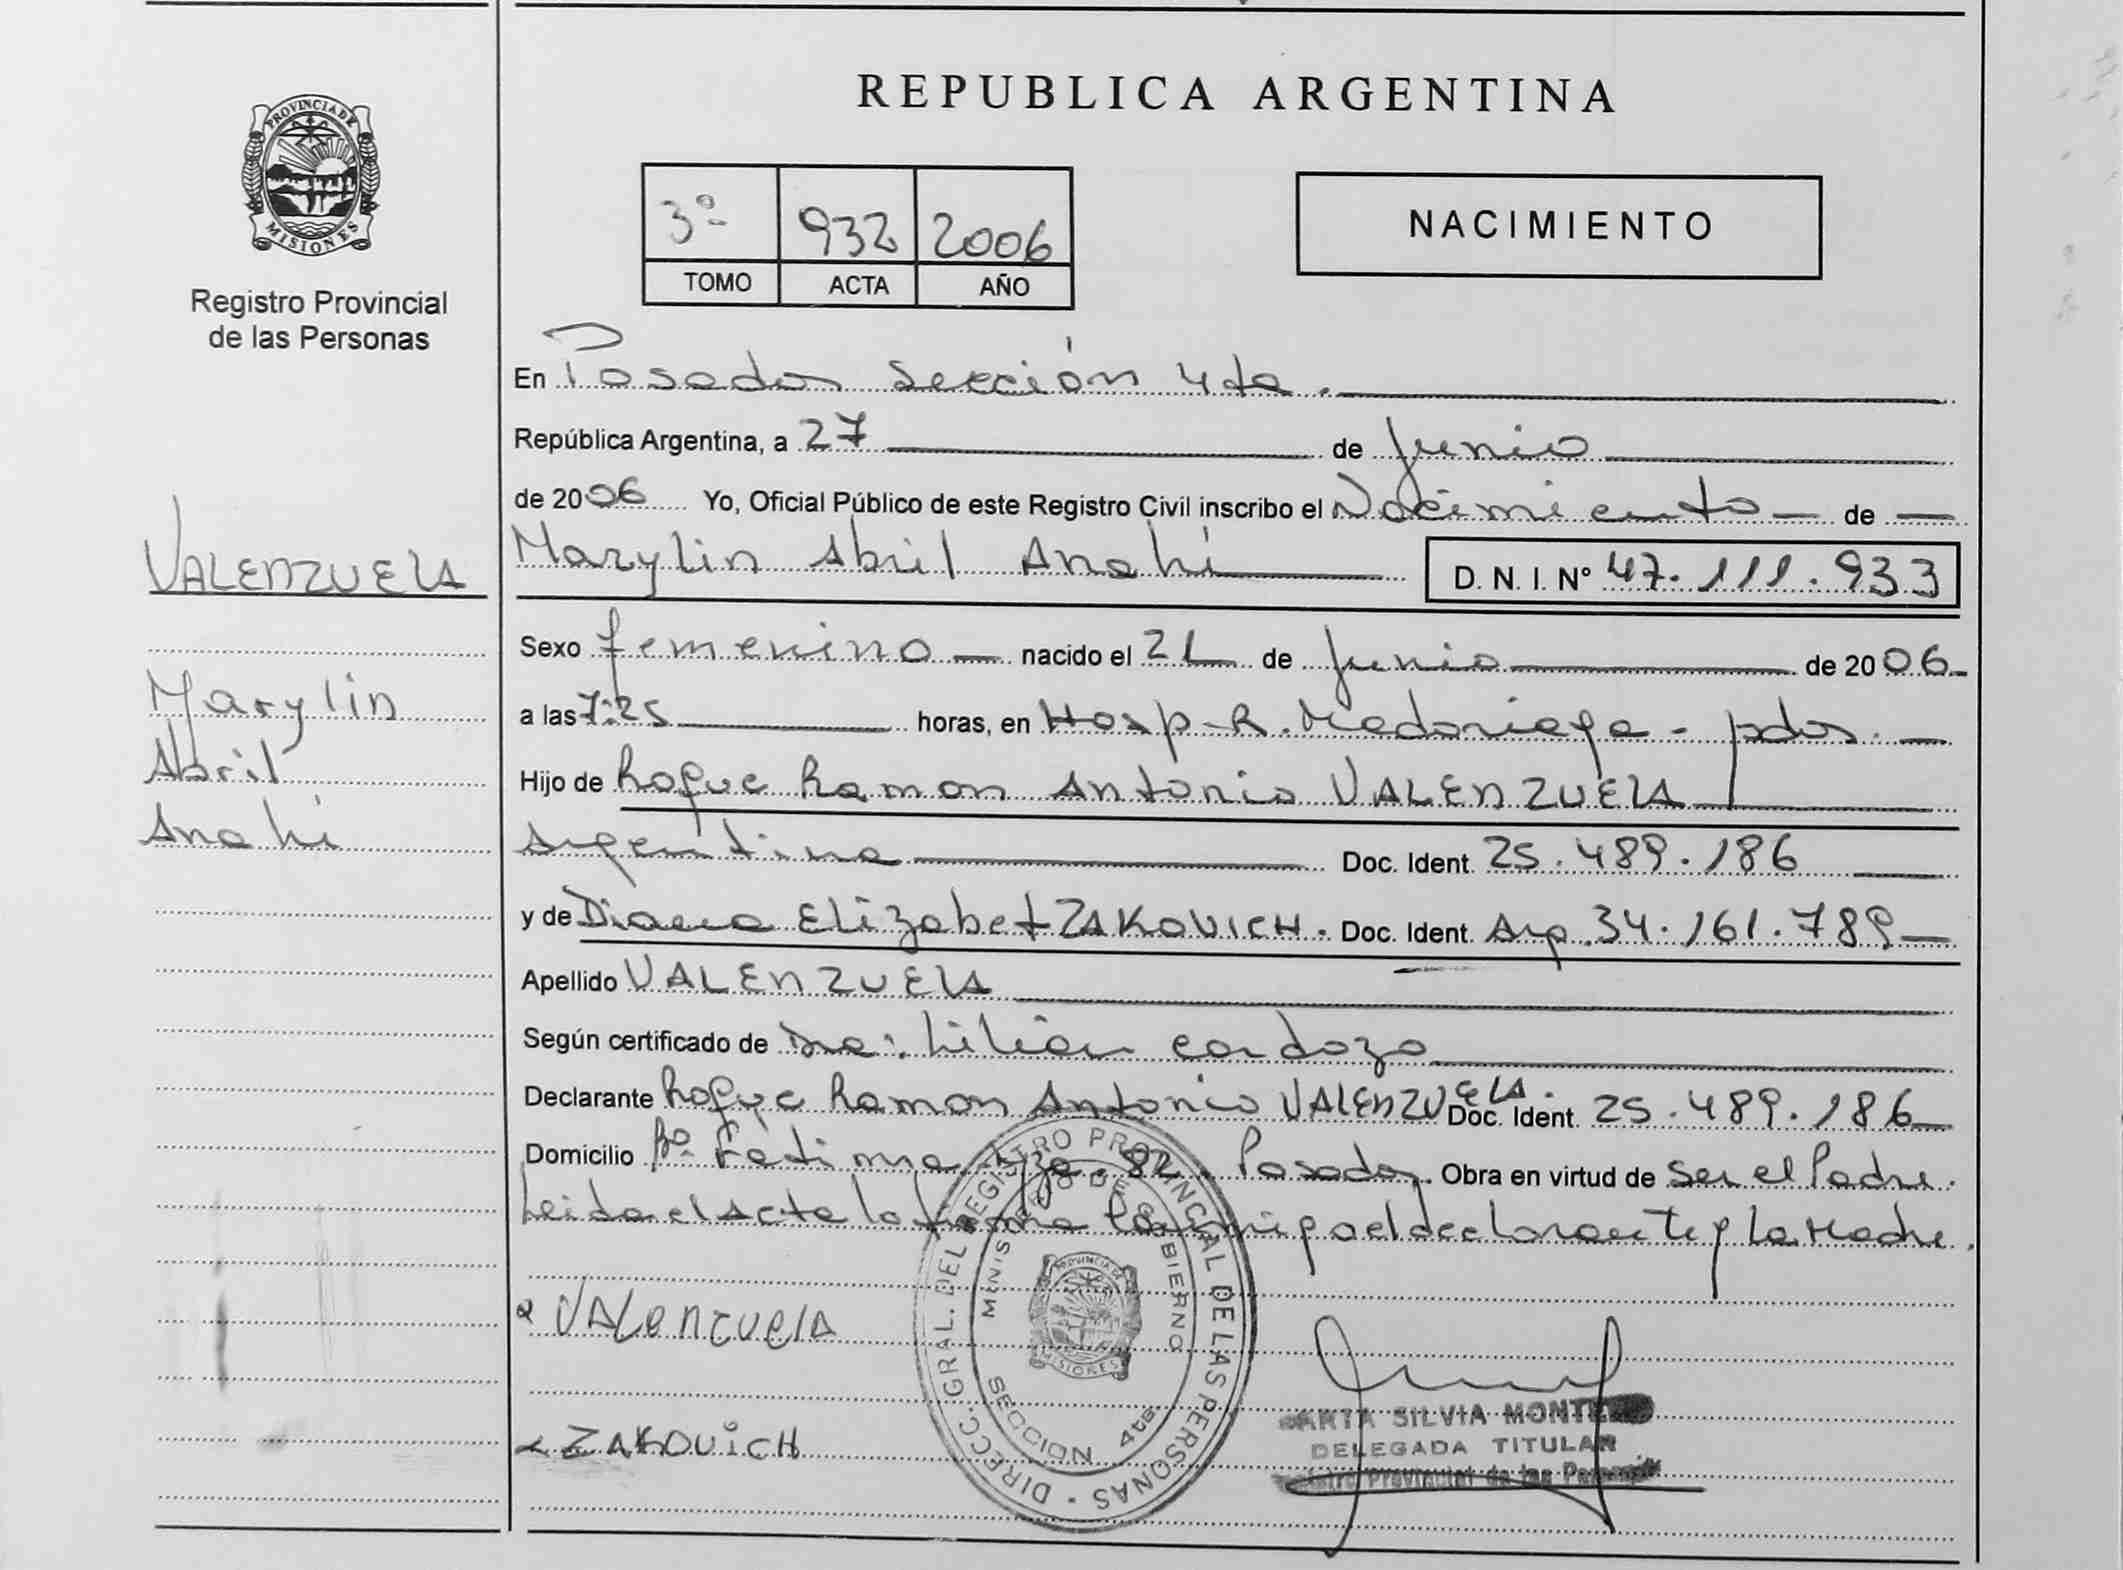 REPUBLICA ARGENTINA
PROVINCIA DE
MISIONES
Registro Provincial
de las Personas
3º 932 2006
TOMO ACTA AÑO
NACIMIENTO
En Posadas Sección 4ta.
República Argentina, a 27 de Junio
de 2006 Yo, Oficial Público de este Registro Civil inscribo el Nacimiento de
Marylin Abril Anahí D. N. I. Nº 47.111.933
VALENZUELA
Marylin
Abril
Anahí
Sexo femenino nacido el 21 de Junio de 2006
a las 7:25 horas, en Hosp. R. Madariaga - pdas.
Hijo de Roque Ramon Antonio VALENZUELA
Argentina Doc. Ident. 25.489.186
y de Diana Elizabet ZAKOVICH. Doc. Ident. Arg. 34.161.789
Apellido VALENZUELA
Según certificado de Dra: Lilian Cardozo
Declarante Roque Ramon Antonio VALENZUELA. Doc. Ident. 25.489.186
Domicilio Bº Fátima 82. Posadas. Obra en virtud de ser el Padre.
Leida el Acta la firma conmigo el declarante y la Madre.
VALenzuelA
ZAKOViCH
DIRECC. GRAL. DEL REGISTRO PROVINCIAL DE LAS PERSONAS
MINISTERIO DE GOBIERNO
PROVINCIA DE
MISIONES
SECCION 4ta
SILVIA
DELEGADA TITULAR
Provincial de las